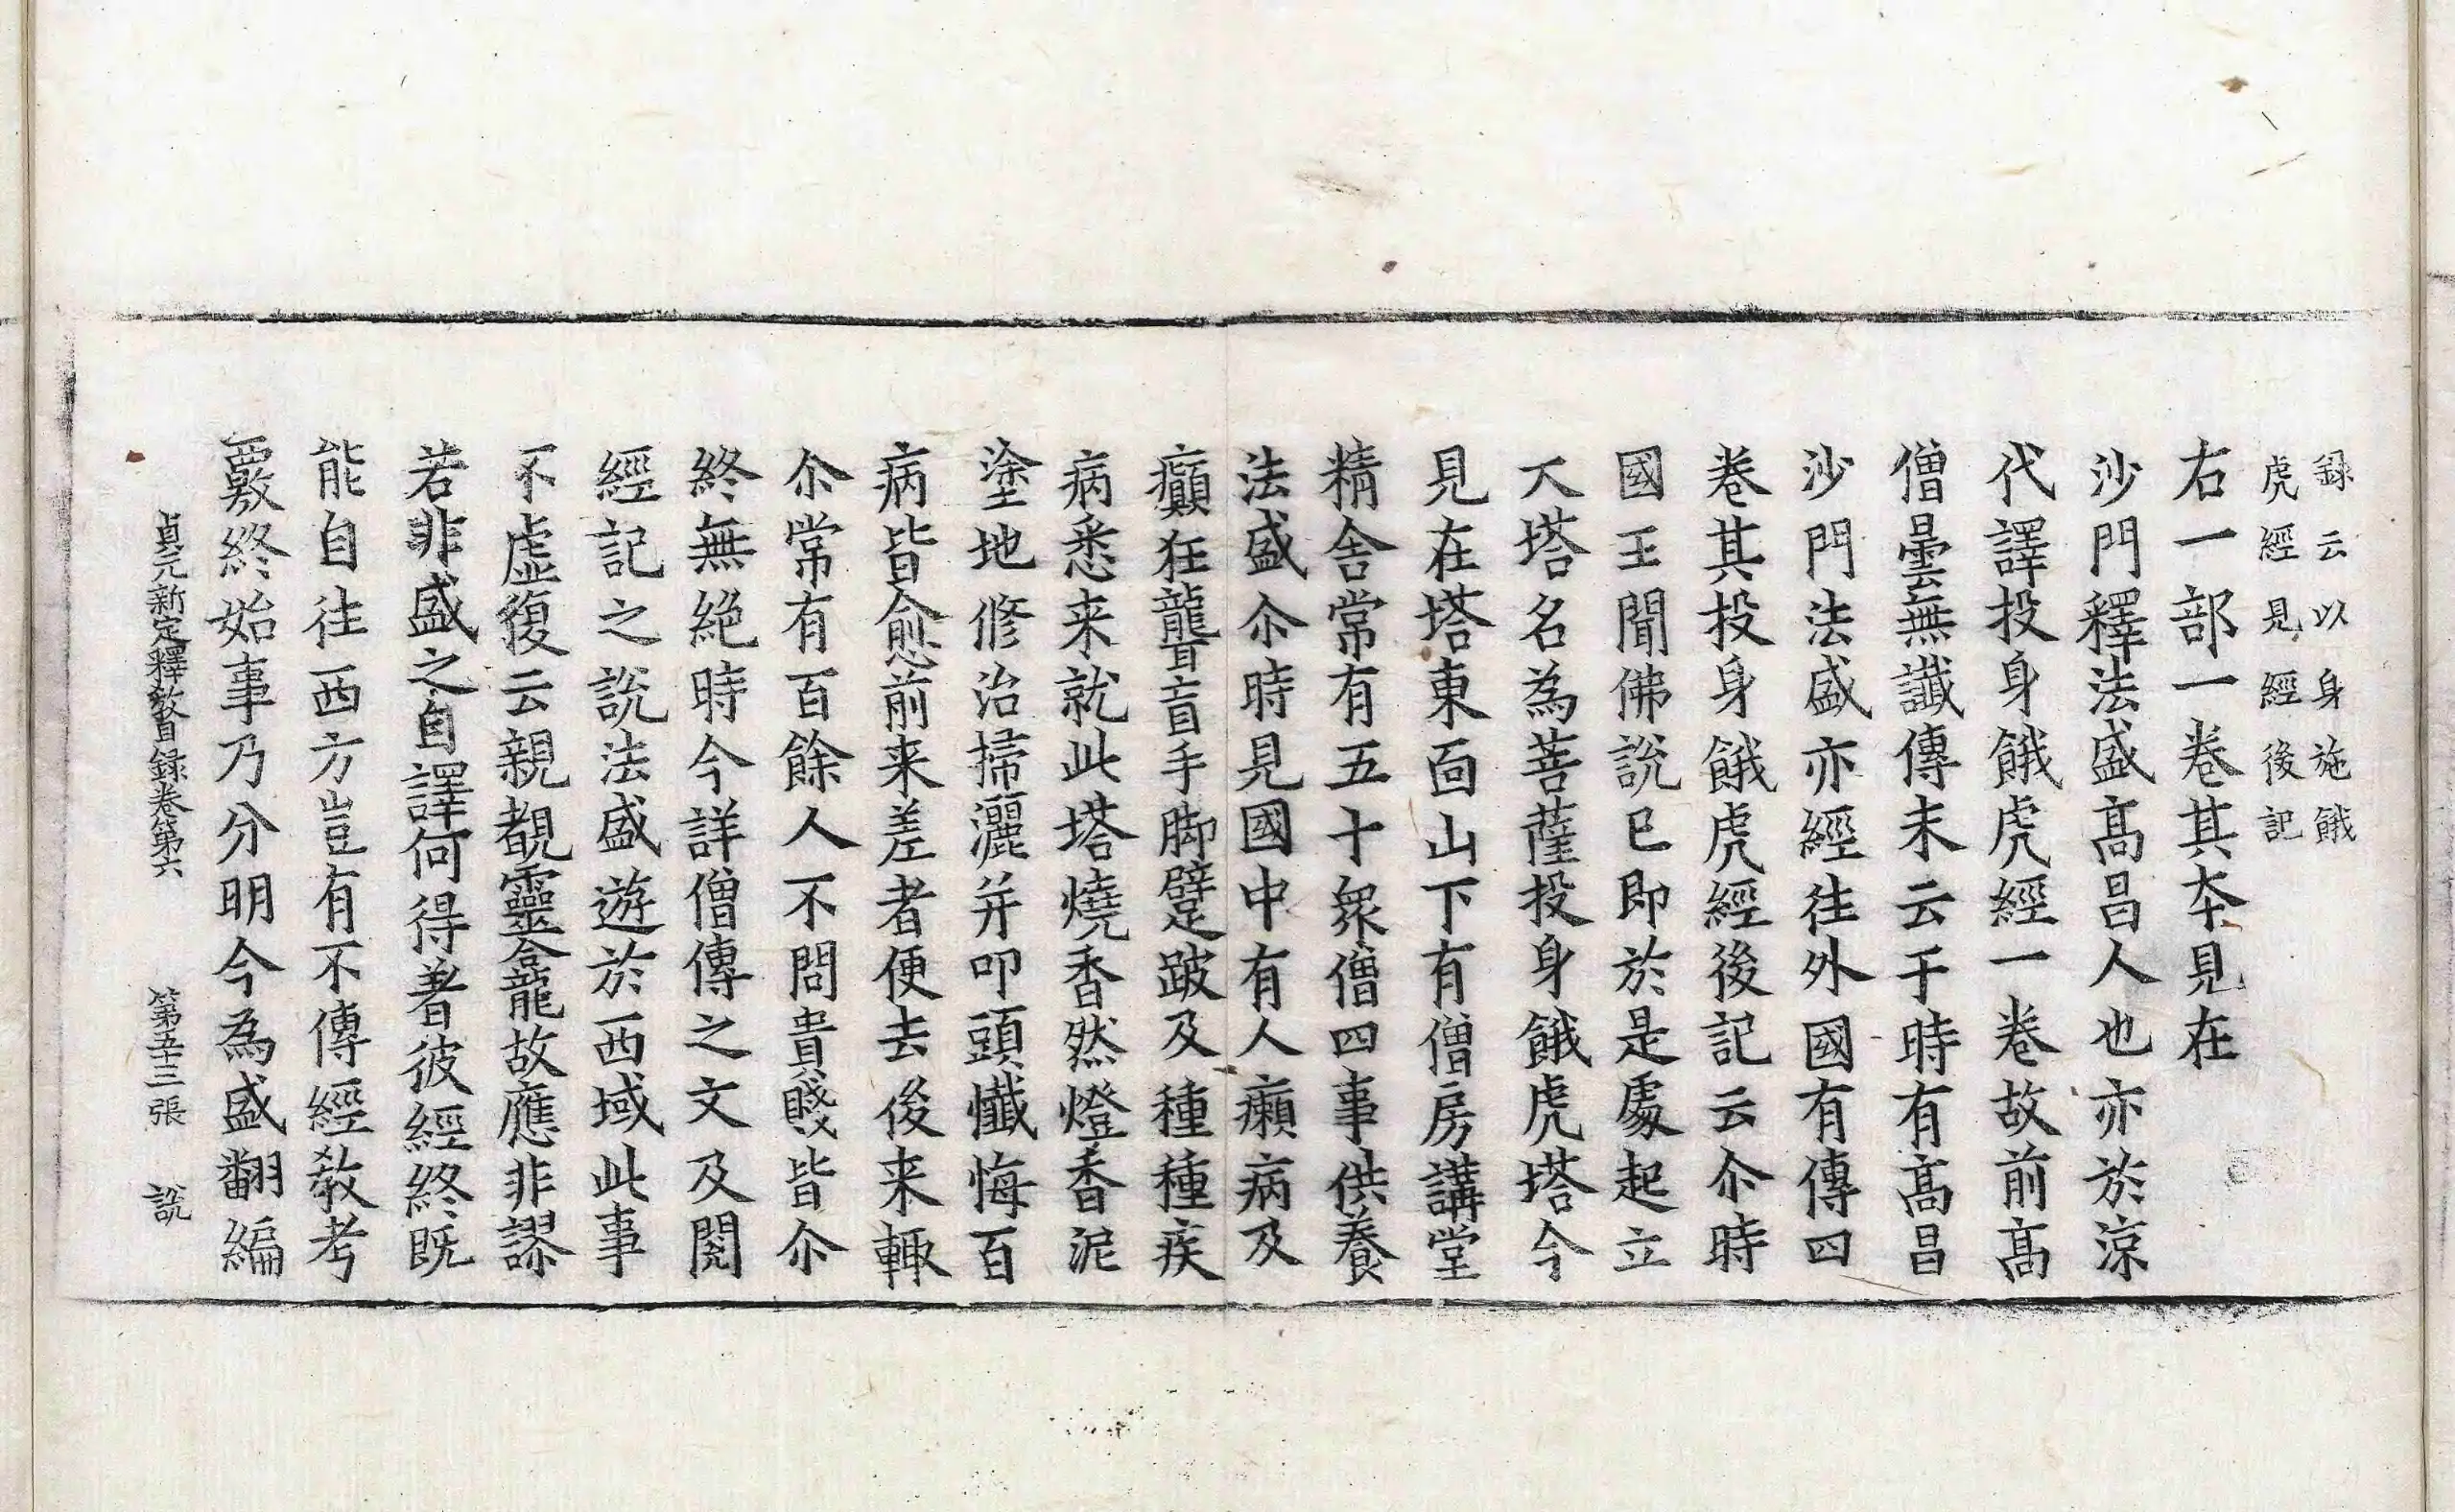 録云以身施餓
虎經見經後記
右一部一巻其夲見在
沙門釋法盛髙昌人也亦於涼
代譯投身餓虎經一巻故前髙
僧曇無讖傳末云于時有髙昌
沙門法盛亦經往外國有傳四
巻其投身餓虎經後記云尒時
國王聞佛說已即於是處起立
大塔名為菩薩投身餓虎塔今
見在塔東面山下有僧房講堂
精舎常有五十衆僧四事供養
法盛尒時見國中有人癩病及
癲狂聾盲手脚躄跛及種種疾
病悉来就此塔燒香然燈香泥
塗地修治掃灑并叩頭懺悔百
病皆愈前来差者便去後来輙
尒常有百餘人不問貴賤皆尒
終無絶時今詳僧傳之文及閱
經記之說法盛遊於西域此事
不虚復云親覩靈龕故應非謬
若非盛之自譯何得著彼經終既
能自往西方豈有不傳經教考
覈終始事乃分明今為盛翻編
貞元新定釋教目録巻第六　第五十三張　說